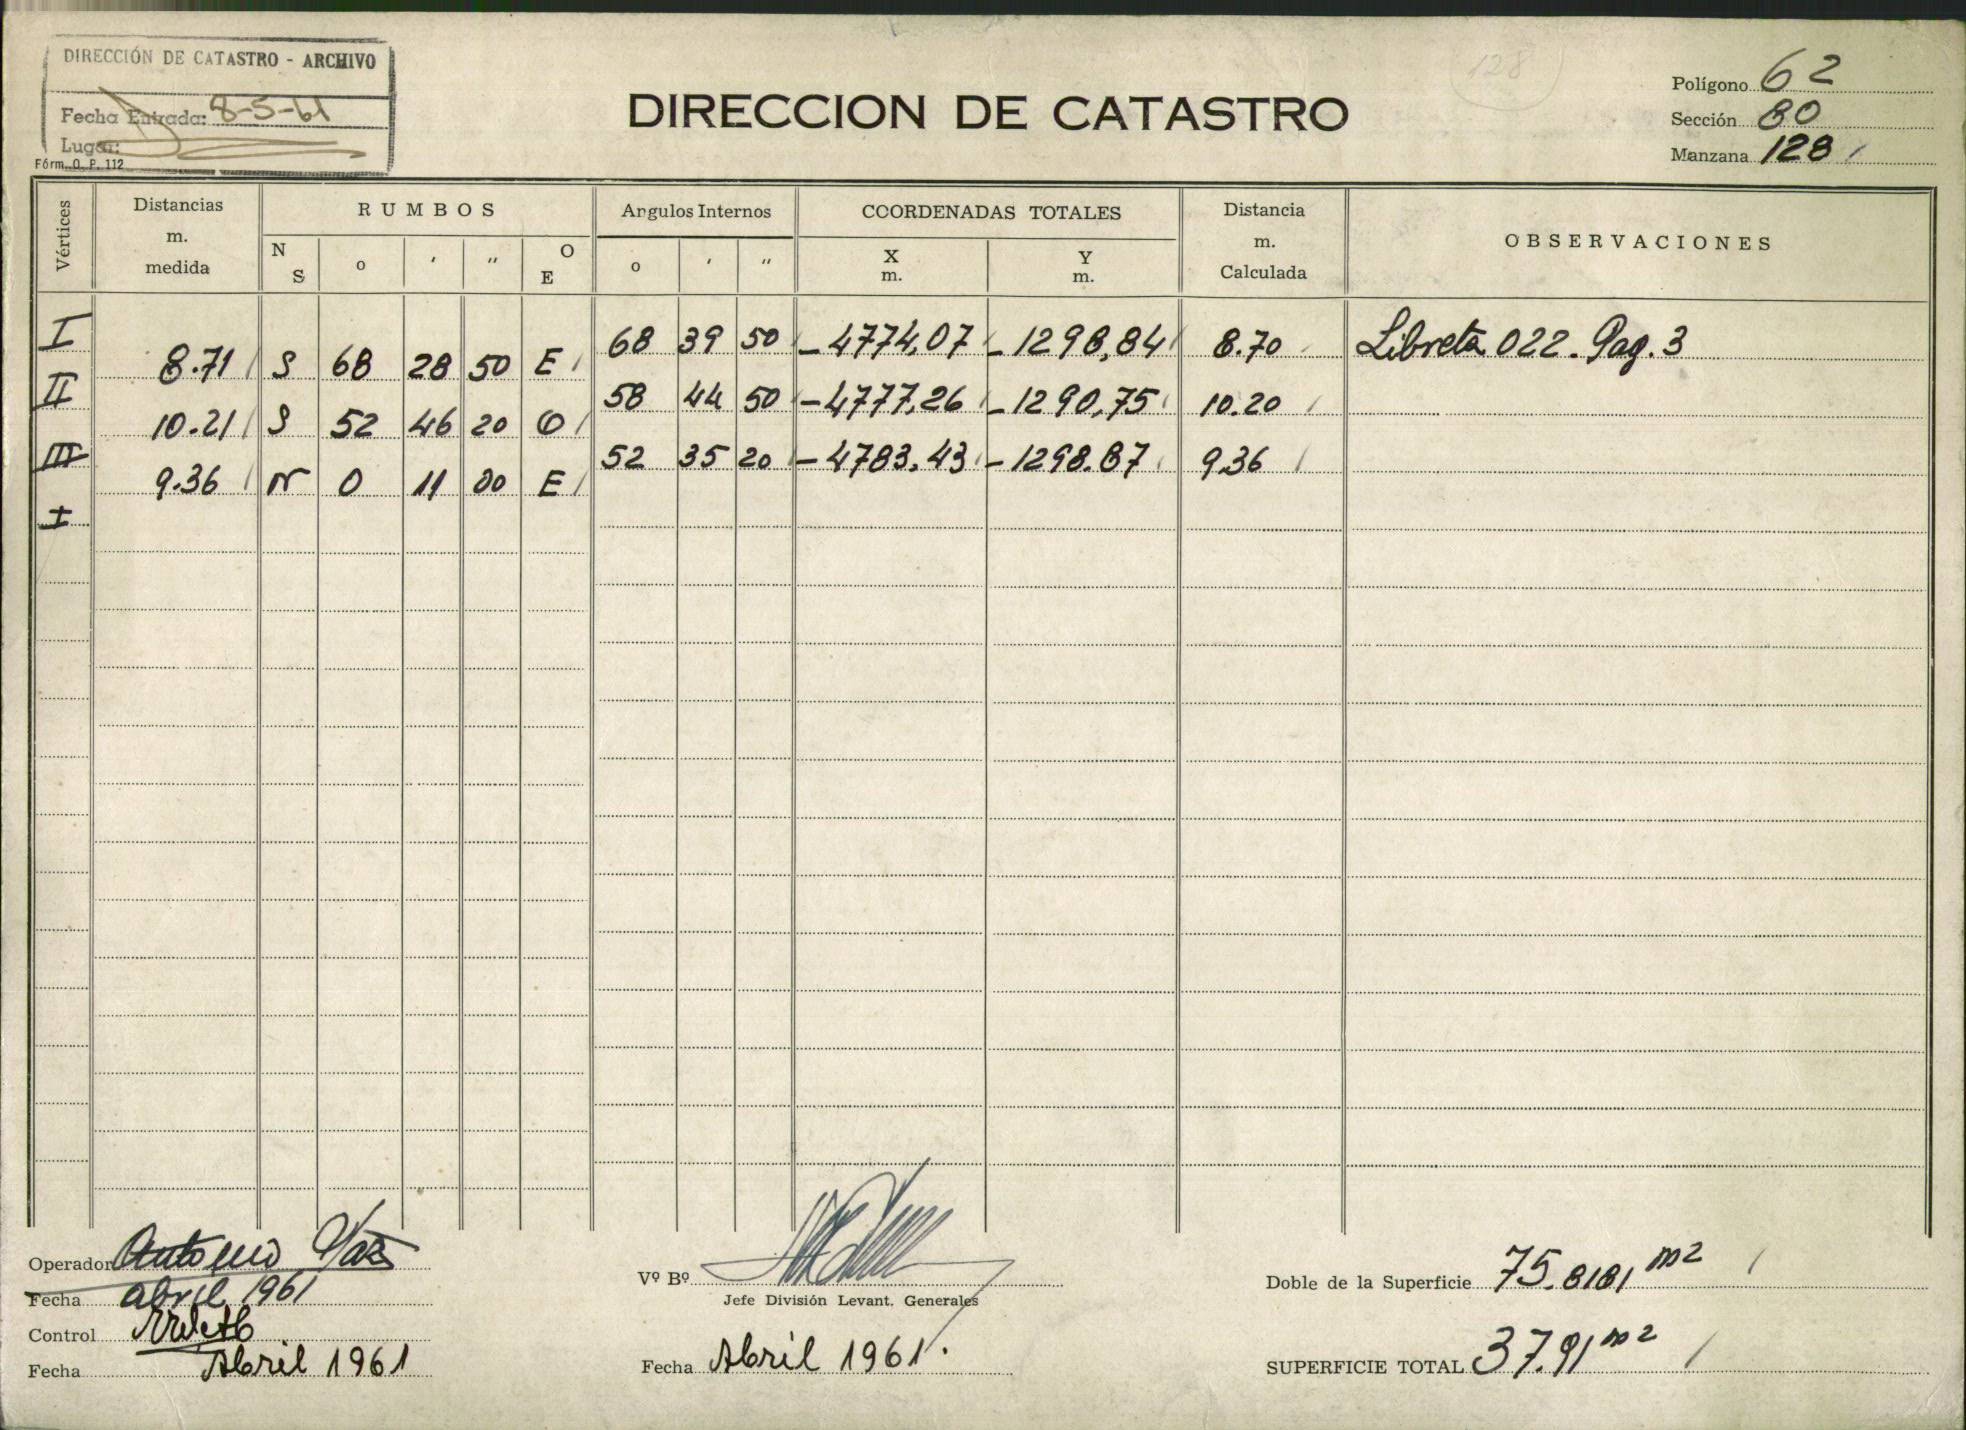 DIRECCIÓN DE CATASTRO - ARCHIVO
Fecha Entrada: 8-5-61
Lugar:
Fórm. O. P. 112
128
DIRECCION DE CATASTRO
Polígono 62
Sección 80
Manzana 128
Vértices Distancias m. medida RUMBOS N S o ' " O E Angulos Internos o ' " COORDENADAS TOTALES X m. Y m. Distancia m. Calculada OBSERVACIONES
I 68 39 50 -4774,07 -1298,84 8.70 Libreta 022. Pag. 3
8.71 S 68 28 50 E
II 58 44 50 -4777,26 -1290,75 10.20
10.21 S 52 46 20 O
III 52 35 20 -4783.43 -1298.87 9.36
9.36 N 0 11 00 E
I
Operador Antonio
Fecha abril 1961
Control
Fecha Abril 1961
Vº Bº
Jefe División Levant. Generales
Fecha Abril 1961.
Doble de la Superficie 75.8181 m2
SUPERFICIE TOTAL 37.91 m2